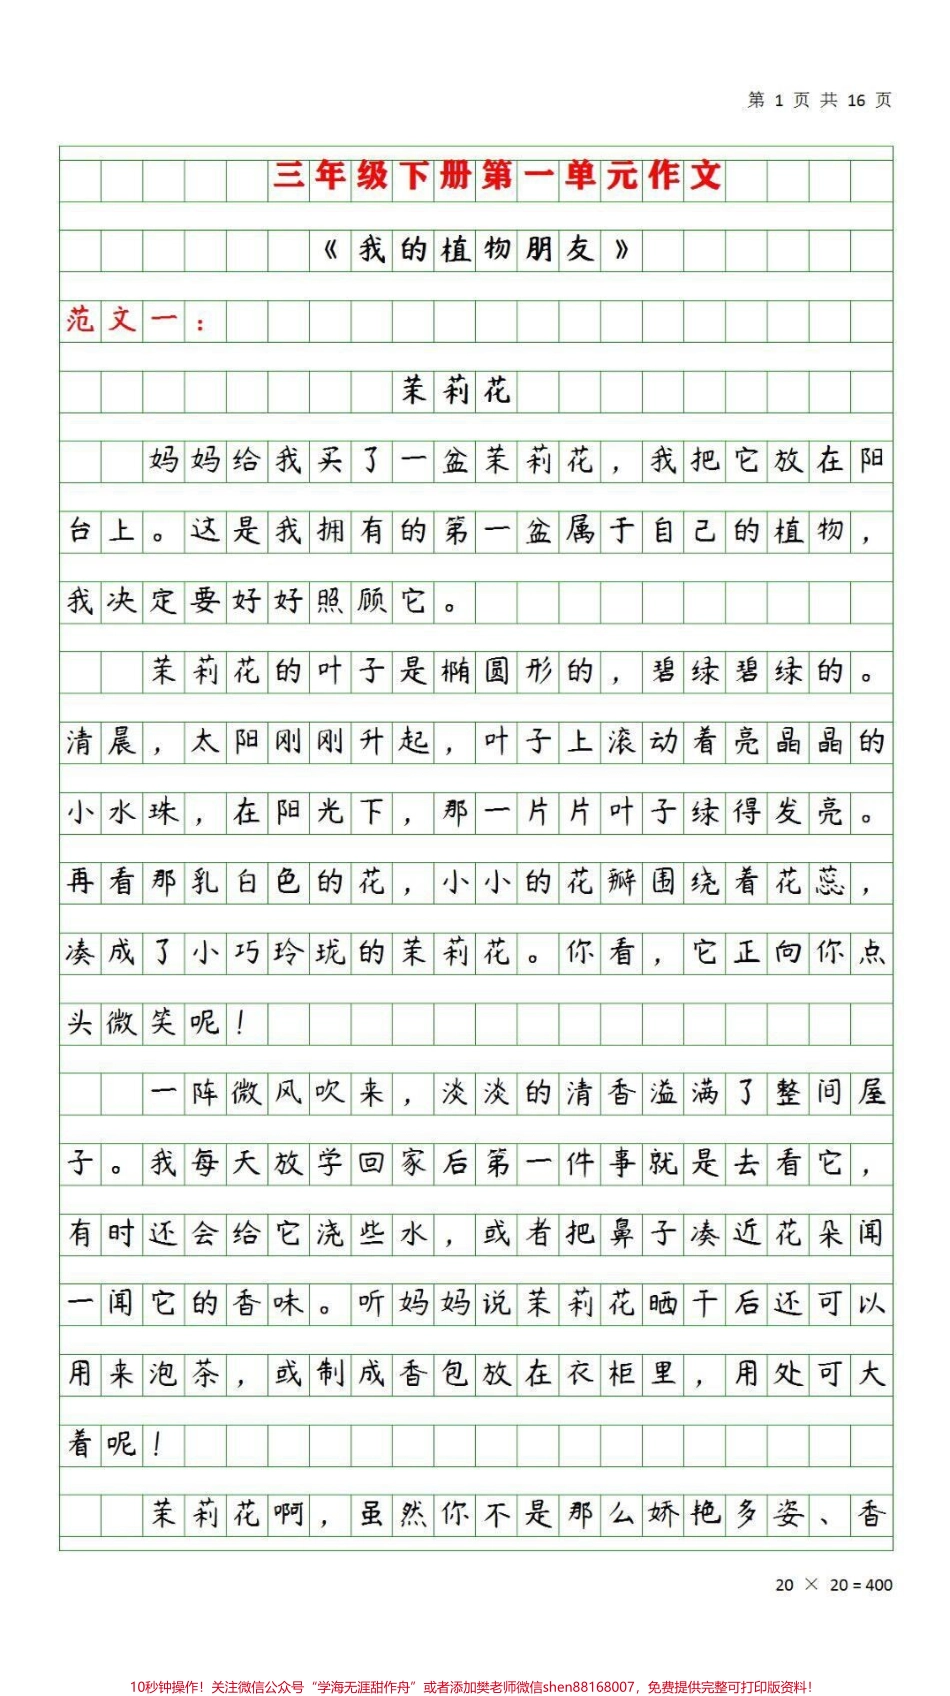 第 1 页 共 16 页
三年级下册第一单元作文
《我的植物朋友》
范文一：
茉莉花
妈妈给我买了一盆茉莉花，我把它放在阳
台上。这是我拥有的第一盆属于自己的植物，
我决定要好好照顾它。
茉莉花的叶子是椭圆形的，碧绿碧绿的。
清晨，太阳刚刚升起，叶子上滚动着亮晶晶的
小水珠，在阳光下，那一片片叶子绿得发亮。
再看那乳白色的花，小小的花瓣围绕着花蕊，
凑成了小巧玲珑的茉莉花。你看，它正向你点
头微笑呢！
一阵微风吹来，淡淡的清香溢满了整间屋
子。我每天放学回家后第一件事就是去看它，
有时还会给它浇些水，或者把鼻子凑近花朵闻
一闻它的香味。听妈妈说茉莉花晒干后还可以
用来泡茶，或制成香包放在衣柜里，用处可大
着呢！
茉莉花啊，虽然你不是那么娇艳多姿、香
20 × 20 = 400
10秒钟操作！关注微信公众号“学海无涯甜作舟”或者添加樊老师微信shen88168007，免费提供完整可打印版资料！